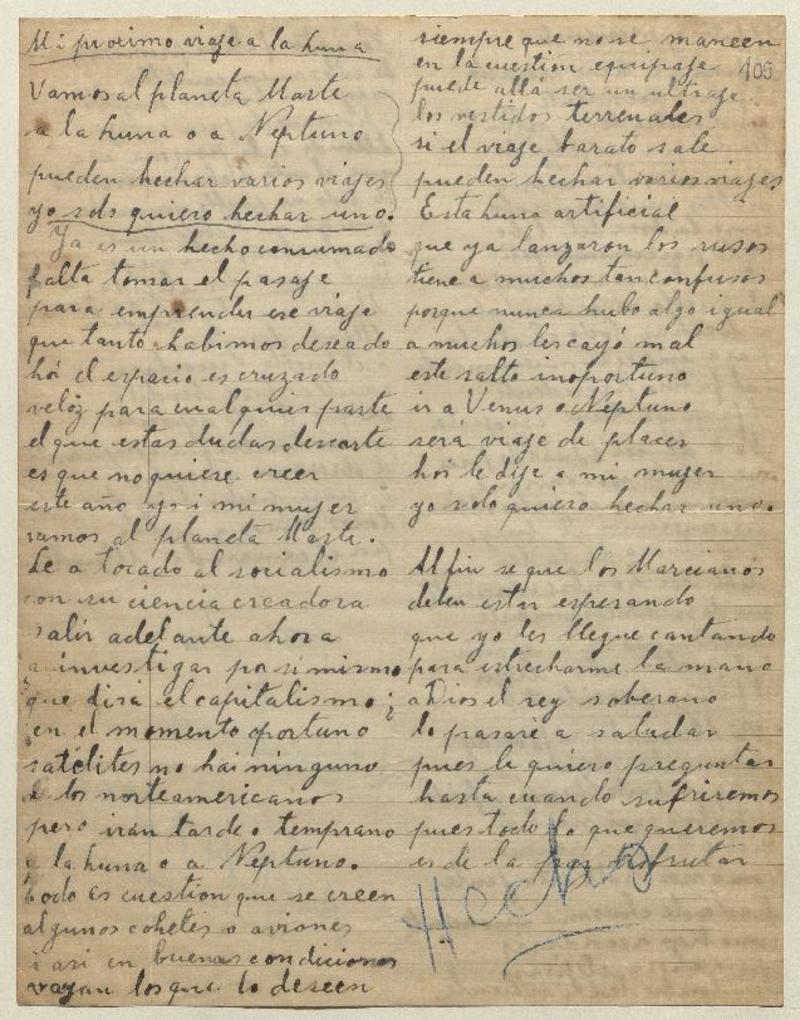 Mi procimo viaje a la Luna
Vamos al planeta Marte
a la Luna o a Neptuno
pueden hechar varios viajes
yo solo quiero hechar uno.
Ya es un hecho consumado
falta tomar el pasaje
para emprender ese viaje
que tanto habimos deseado
hoi el espacio es cruzado
velóz para cualquier parte
el que estas dudas descarte
es que no quiere creer
este año yo i mi mujer
vamos al planeta Marte.
Le a tocado al socialismo
con su ciencia creadora
salir adelante ahora
a investigar por si mismo
que dira el capitalismo;
en el momento oportuno
satélites no hai ninguno
de los norteamericanos
pero iran tarde o temprano
a la Luna o a Neptuno.
todo es cuestion que se creen
algunos cohetes o aviones
i asi en buenas condiciones
vayan los que lo deseen
siempre que no se maneen
en la cuestion equipaje
105
puede allá ser un ultraje
los vestidos terrenales
si el viaje barato sale
pueden hechar varios viajes
Esta Luna artificial
que ya lanzaron los rusos
tiene a muchos tan confusos
porque nunca hubo algo igual
a muchos les cayó mal
este salto inoportuno
ir a Venus o Neptuno
será viaje de placer
hoi le dije a mi mujer
yo solo quiero hechar uno.
Al fin se que los Marcianos
deben estar esperando
que yo les llegue cantando
para estrecharme la mano
a Dios el rey soberano
lo pasaré a saludar
pues le quiero preguntar
hasta cuando sufriremos
pues todo lo que queremos
es de la paz disfrutar